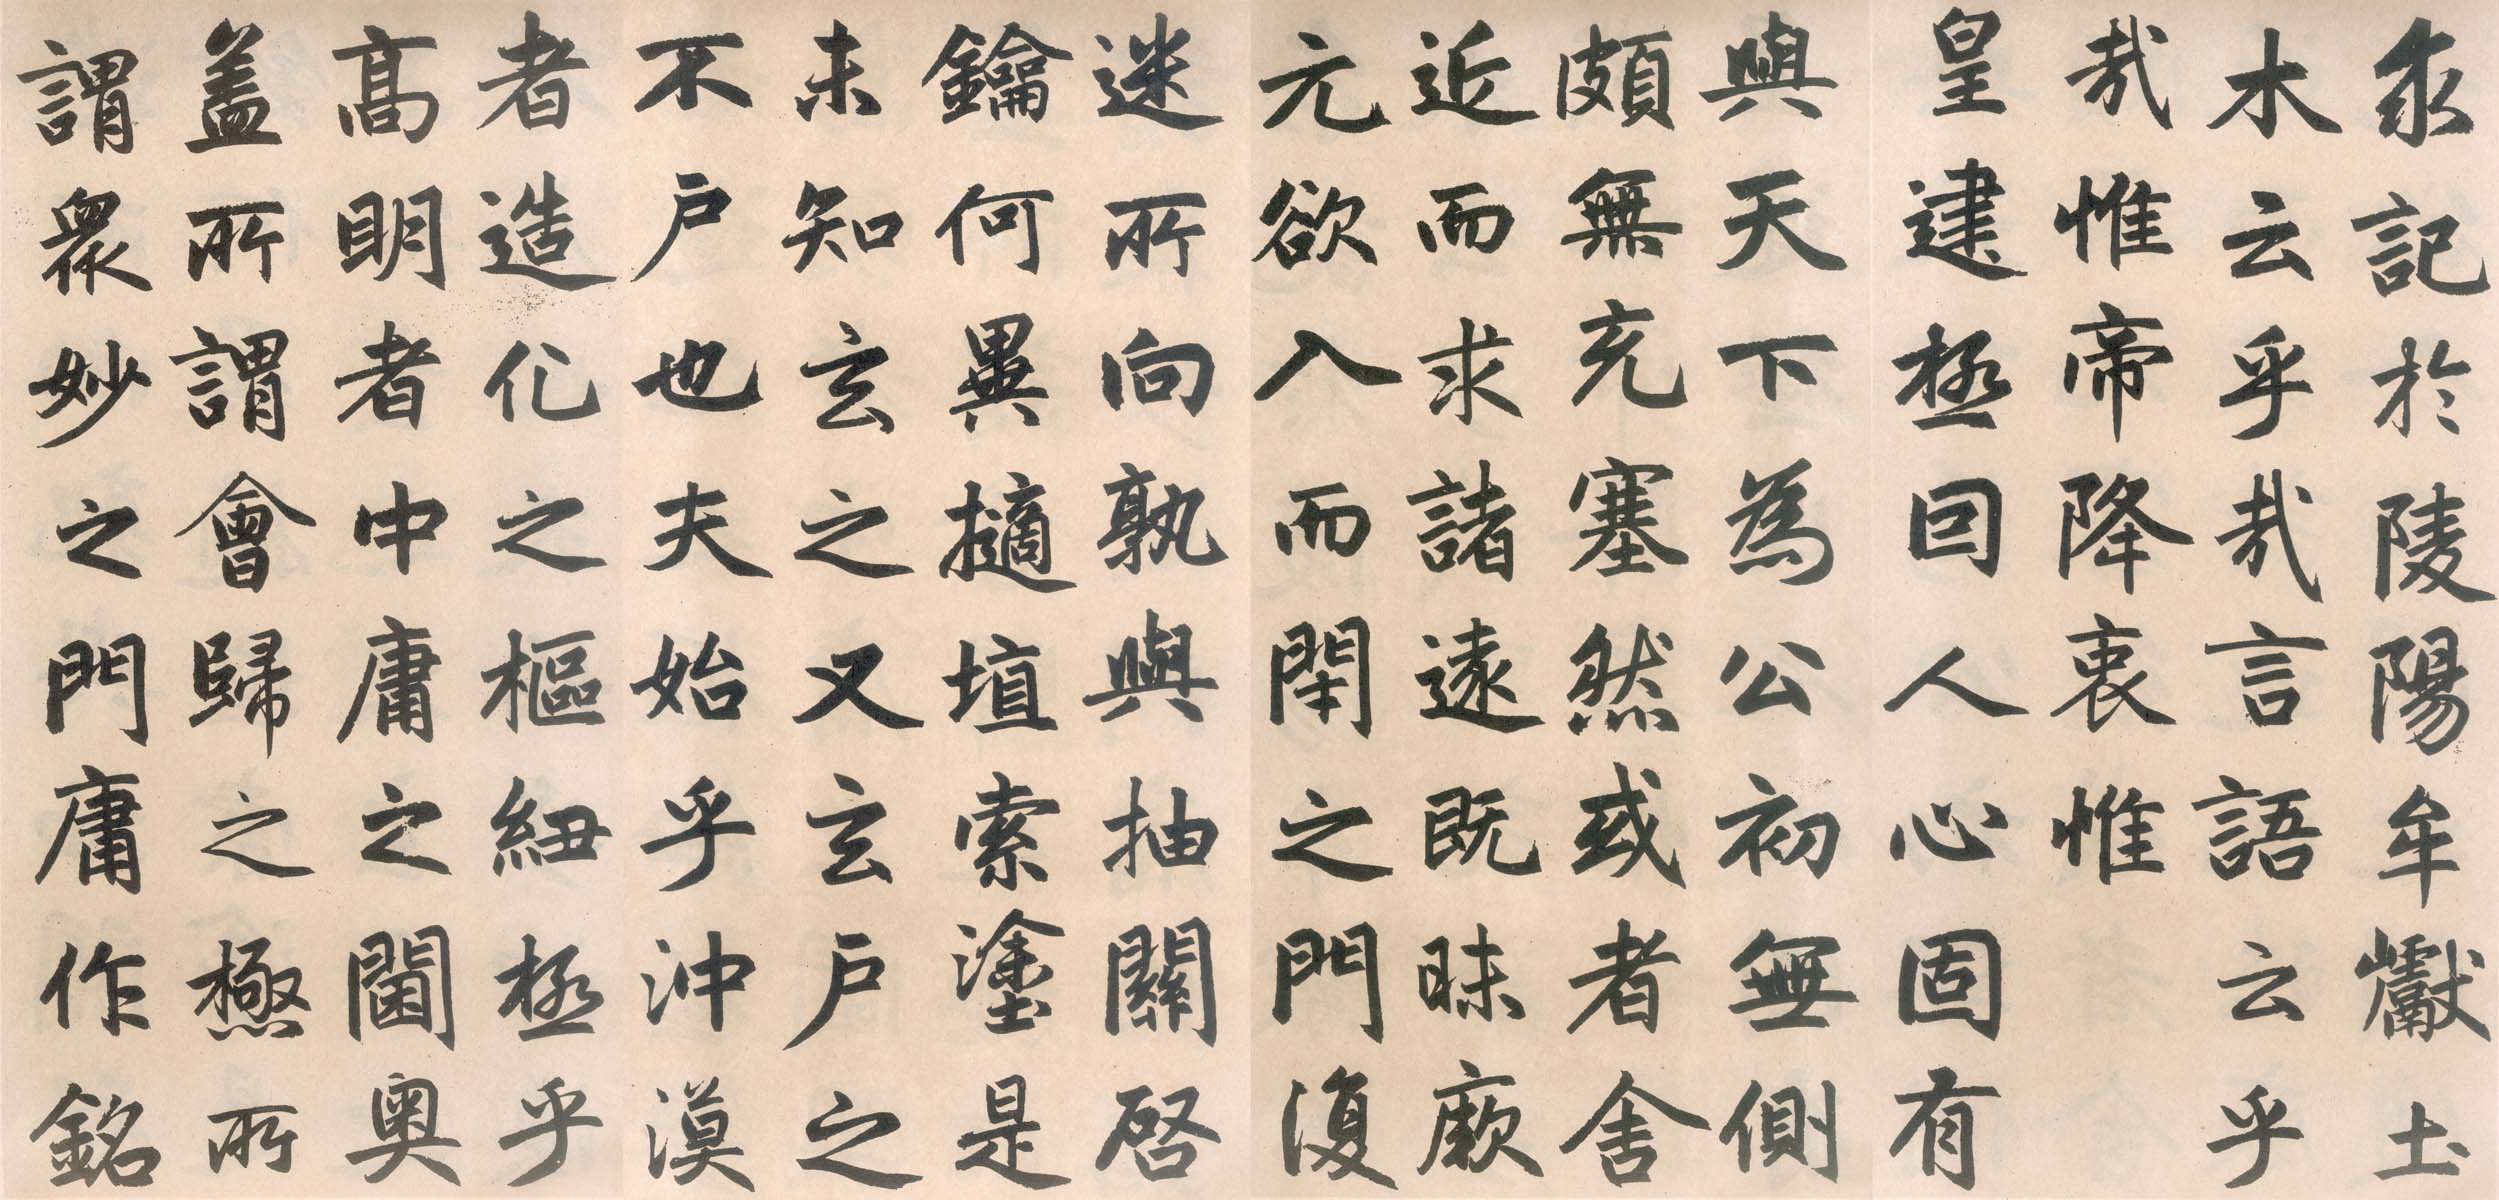 求記於陵陽牟巘土
木云乎哉言語云乎
哉惟帝降衷惟
皇建極囙人心固有
與天下為公初無側
頗無充塞然或者舍
近而求諸遠既昧厥
元欲入而閇之門復
迷所向孰與抽關啓
鑰何異擿埴索塗是
未知玄之又玄戶之
不戶也夫始乎沖漠
者造化之樞紐極乎
高明者中庸之閫奧
盖所謂會歸之極所
謂衆妙之門庸作銘